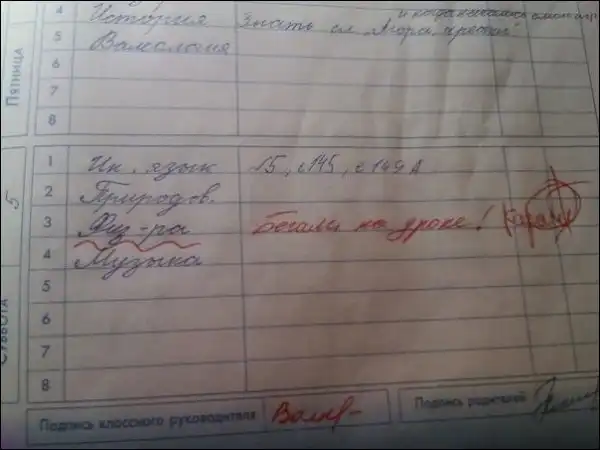 ПЯТНИЦА
4 История Знать сл.
5 Валеология
6
7
8
5
СУББОТА
1 Ин. язык с 145, с 149
2 Природов.
3 Физ-ра Бегали на уроке!
4 Музыка
5
6
7
8
Подпись классного руководителя
Подпись родителей